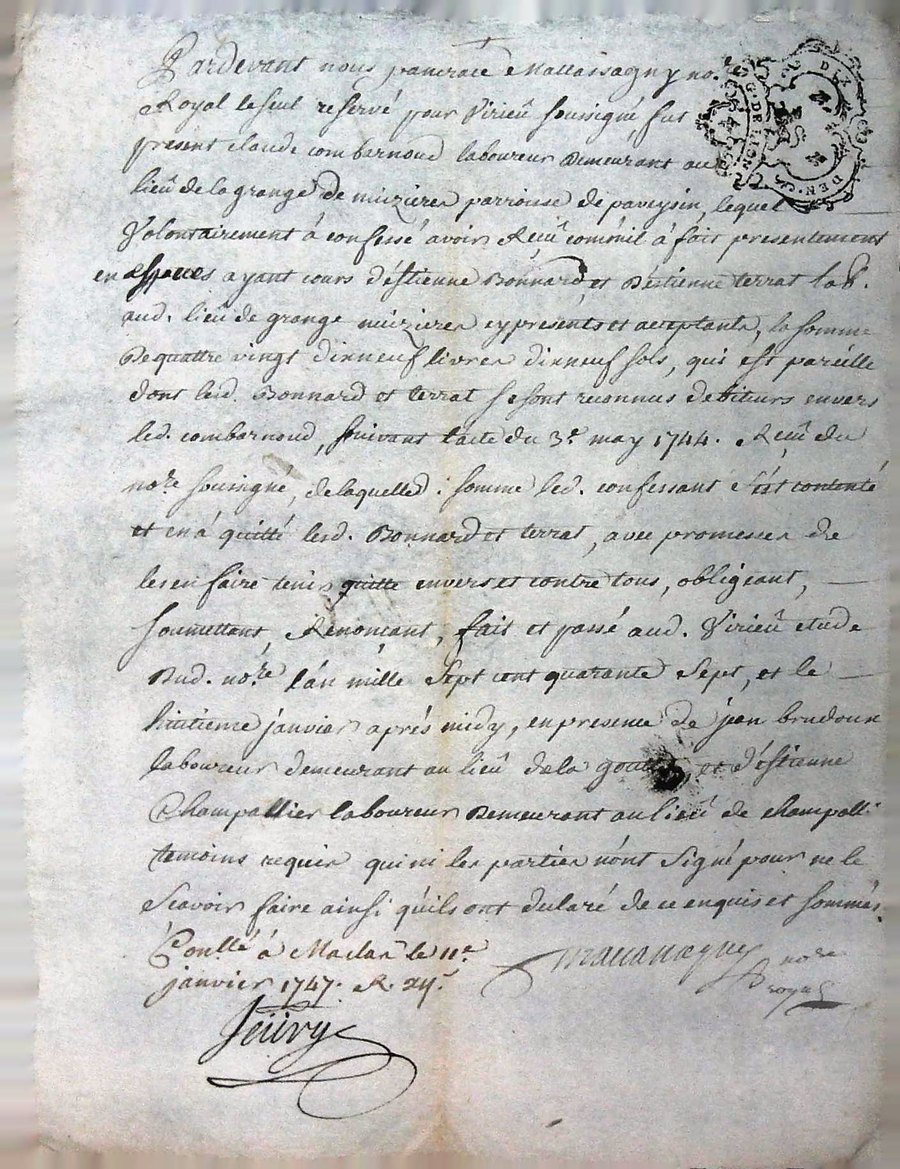 Pardevant nous pancrace Mallassagny no.re
Royal le seul reservé pour Virieû soussigné, fut
present Claude combarnoud laboureur Demeurant au
lieû de la grange de muzieres parroisse de paveysin, lequel
Volontairement à confessé avoir Reçeû comm'il à fait presentement
en Especes ayant cours d'éstienne Bonnard et D'estienne terrat lab.r
aud. lieû de grange muzieres cy presents et acceptants, la somme
De quattre vingt dixneuf livres dixneuf sols, qui est pareille
dont lesd. Bonnard et terrat se sont reconnus debiteurs envers
led. combarnoud, suivant l'acte du 3.e may 1744. Reçeû du
no.re soussigné, de laquelle d. somme led. confessant s'est contenté
et en à quitté lesd. Bonnard et terrat, avec promesses de
les en faire tenir quitte envers et contre tous, obligeant,
soumettant, Renoncant, fait et passé aud. Virieû etude
Dud. no.re l'an mille sept cent quarante sept, et le
huitieme janvier aprés midy, en presence de jean brudoux
laboureur demeurant au lieû de la et d'éstienne
Champallier laboureur Demeurant au lieû de champalli
temoins requis qui ni les parties n'ont signé pour ne le
scavoir faire ainsi qu'ils ont declaré de ce enquis et sommés.
Conllé à Maclas le 11.e
janvier 1747. R. 24.s
Mallassagny no.re
royal
G. DE LION